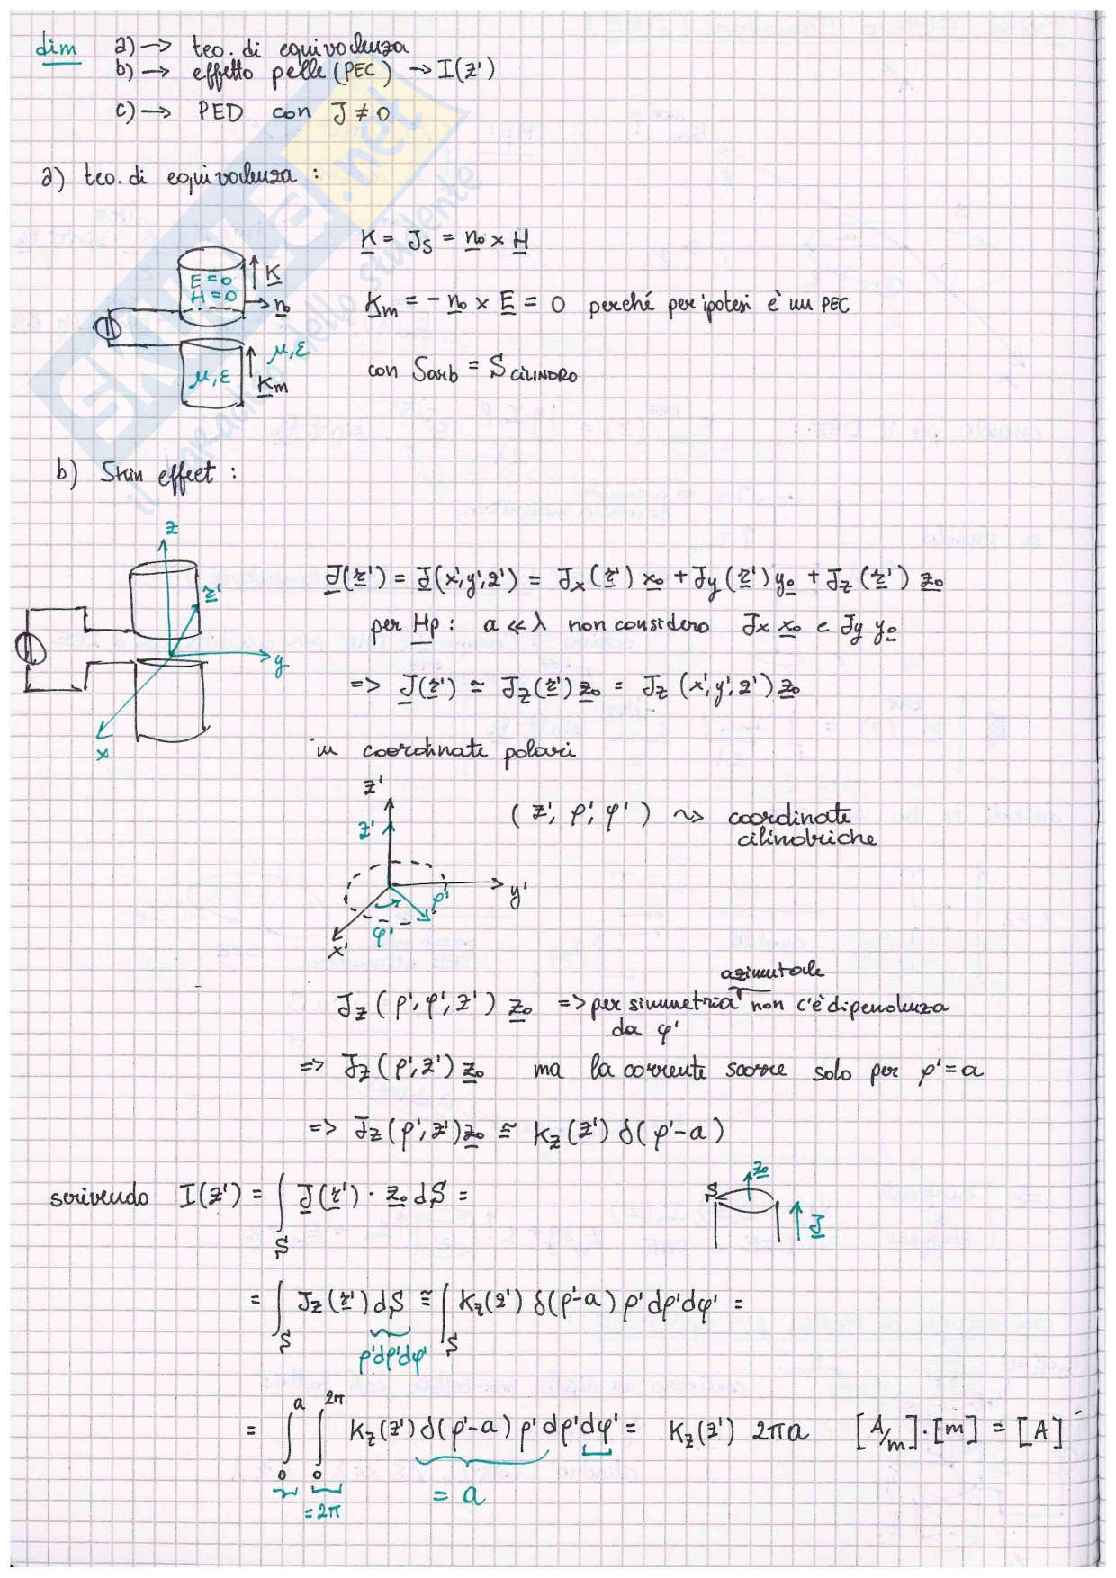 dim a) → teo. di equivalenza
b) → effetto pelle (PEC) → I(z')
c) → PED con J ≠ 0
a) teo. di equivalenza :
K = Js = n₀ × H
E=0
H=0
K
n₀
Km = - n₀ × E = 0 perché per ipotesi è un PEC
μ,ε
μ,ε
Km
con Sarb = S CILINDRO
b) Skin effect :
z
r'
y
x
J(r') = J(x',y',z') = Jx(r') x₀ + Jy(r') y₀ + Jz(r') z₀
per Hp : a << λ non considero Jx x₀ e Jy y₀
=> J(r') ≃ Jz(r') z₀ = Jz (x',y',z') z₀
in coordinate polari
z'
z'
y'
ρ'
φ'
x'
(z', ρ', φ') ~> coordinate
cilindriche
azimutale
Jz(ρ', φ', z') z₀ => per simmetria non c'è dipendenza
da φ'
=> Jz(ρ', z') z₀ ma la corrente scorre solo per ρ' = a
=> Jz(ρ', z') z₀ ≅ Kz(z') δ(ρ'-a)
scrivendo I(z') = ∫S J(r') · z₀ dS =
S
z₀
J
= ∫S Jz(r') dS ≅ ∫S Kz(z') δ(ρ'-a) ρ' dρ' dφ' =
ρ'dρ'dφ'
= ∫₀ᵃ ∫₀²π Kz(z') δ(ρ'-a) ρ' dρ' dφ' = Kz(z') 2πa [A/m]·[m] = [A]
= 2π
= a
SKUOLA.net